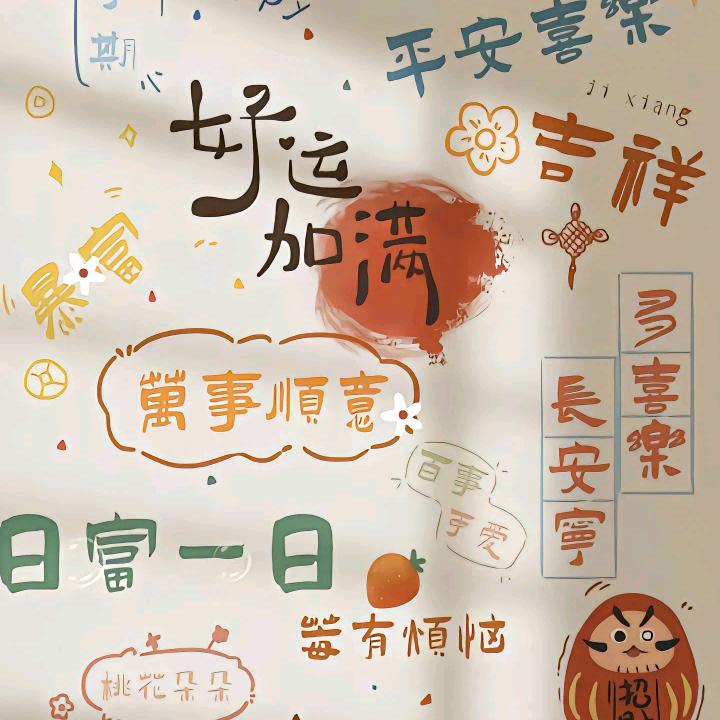 期
平安喜樂
ji xiang
吉祥
好运
加满
暴富
多喜樂
長安寧
萬事順意
百事
可爱
日富一日
莓有煩恼
桃花朵朵
招